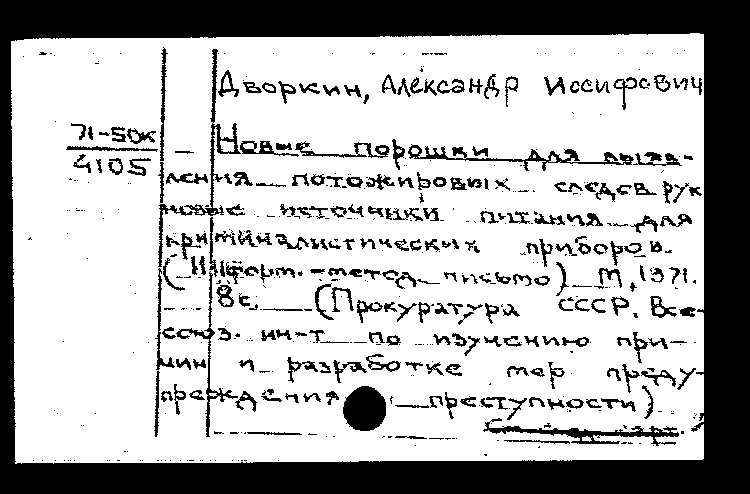 Дворкин, Александр Иосифович
71-50к
4105
Новые порошки для выяв-
ления потожировых следов рук
новые источники питания для
криминалистических приборов.
(Информ.-метод. письмо) М, 1971.
8с. (Прокуратура СССР. Все-
союз. ин-т по изучению при-
чин и разработке мер преду-
преждения преступности)